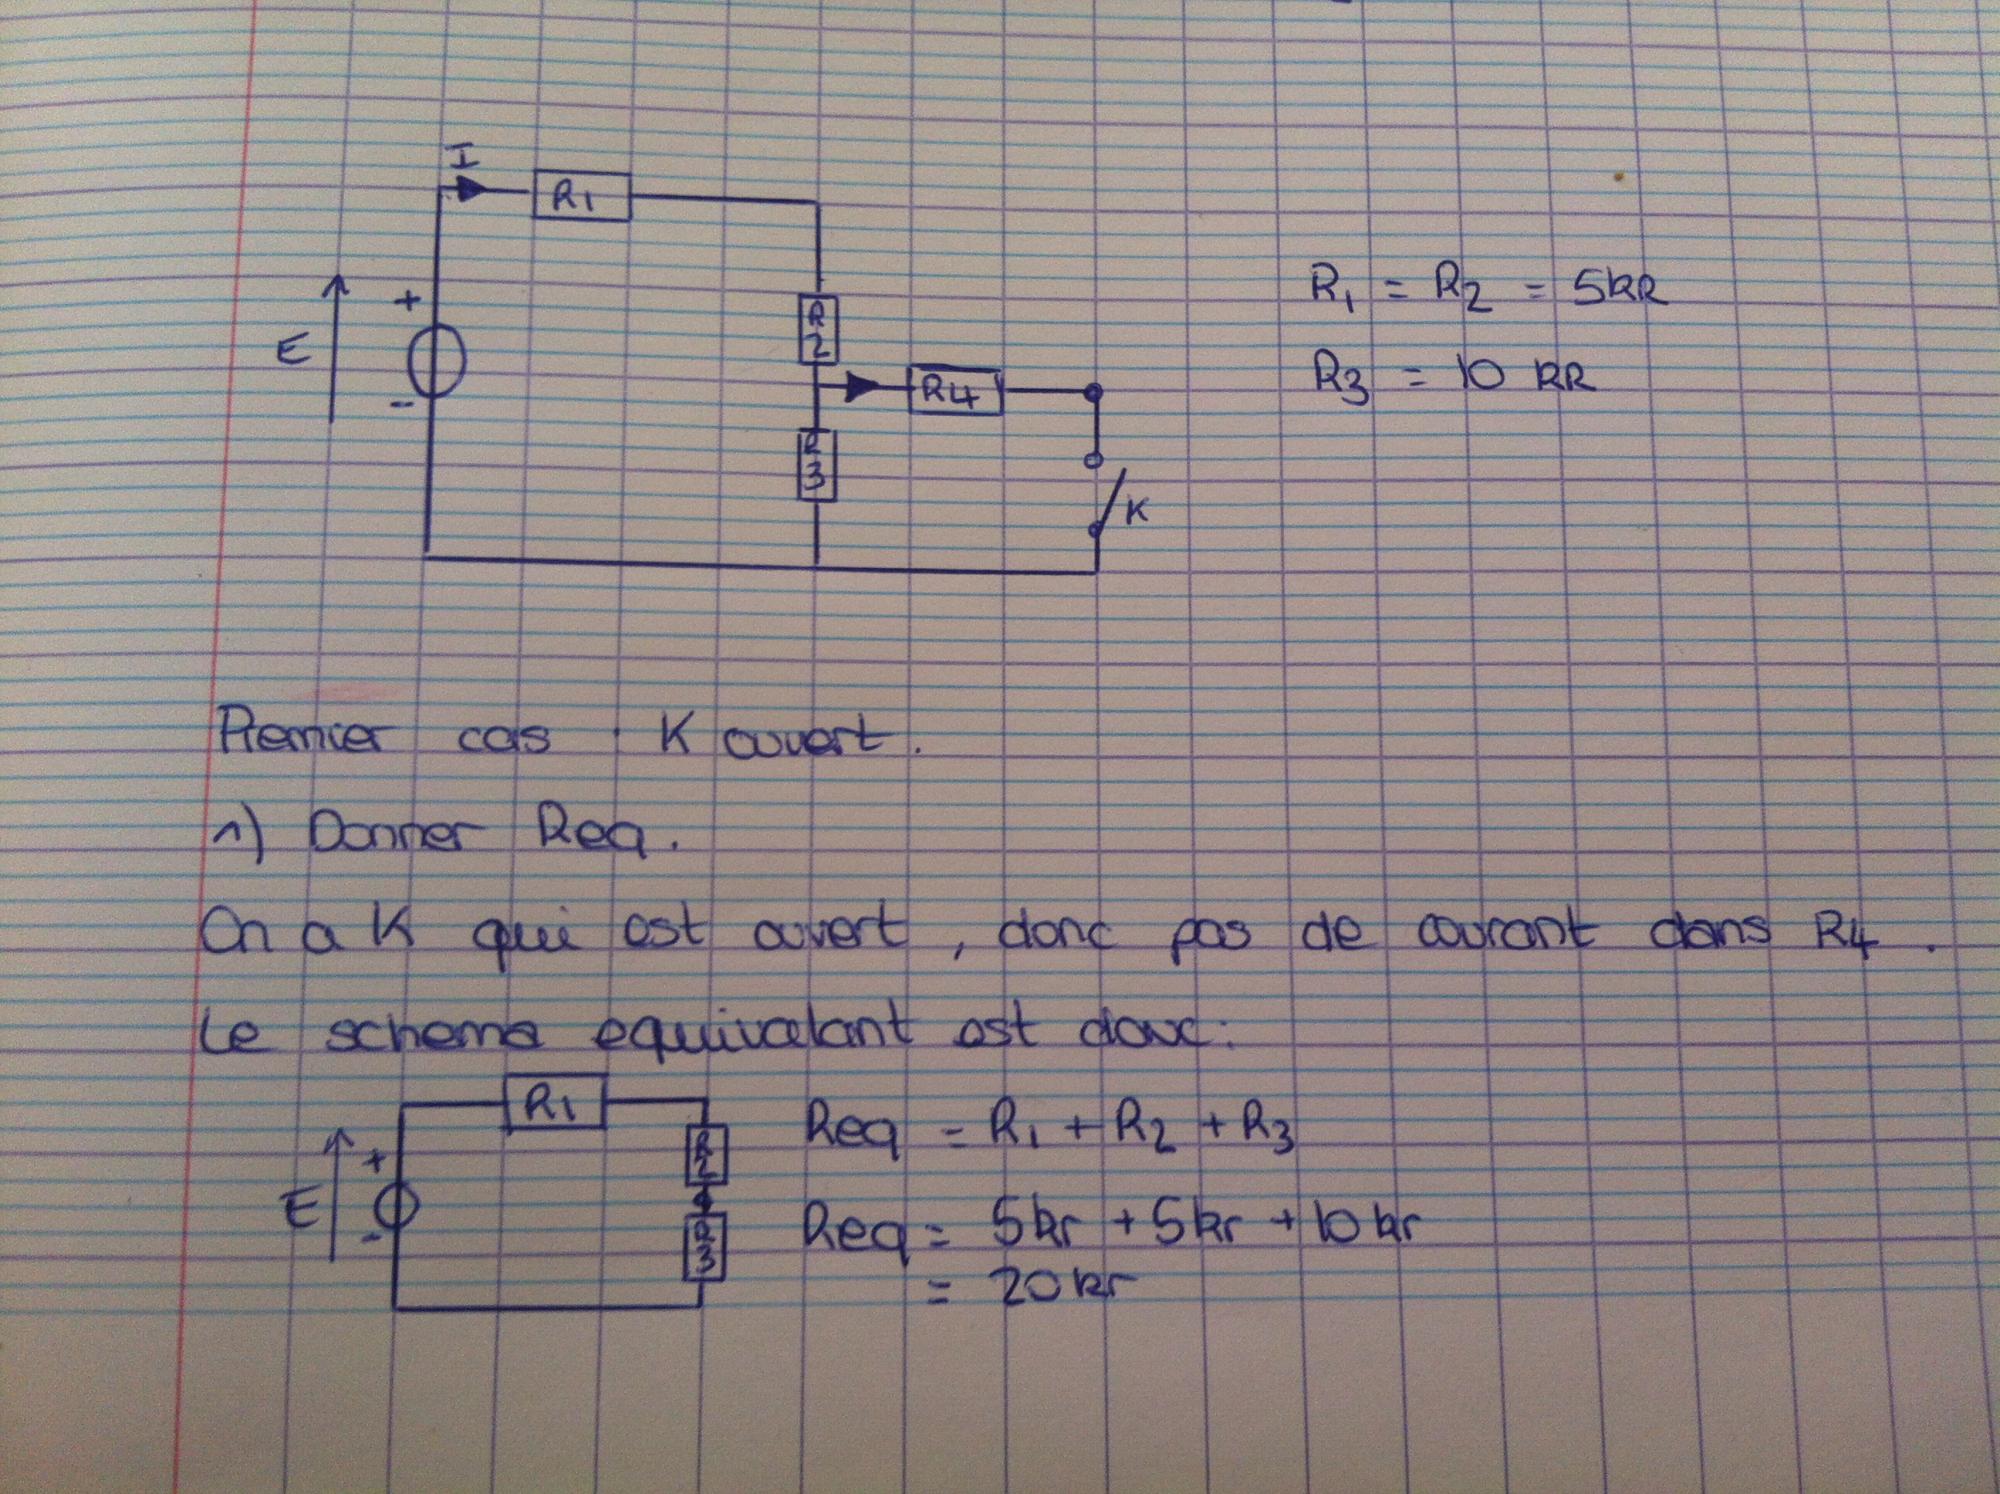 I
R1
E
+
-
R2
R4
R3
K
R1 = R2 = 5kR
R3 = 10 kR
Premier cas : K ouvert.
1) Donner Req.
On a K qui est ouvert, donc pas de courant dans R4.
Le schema equivalant est donc:
R1
E
+
-
R2
R3
Req = R1 + R2 + R3
Req = 5kr + 5kr + 10kr
= 20kr